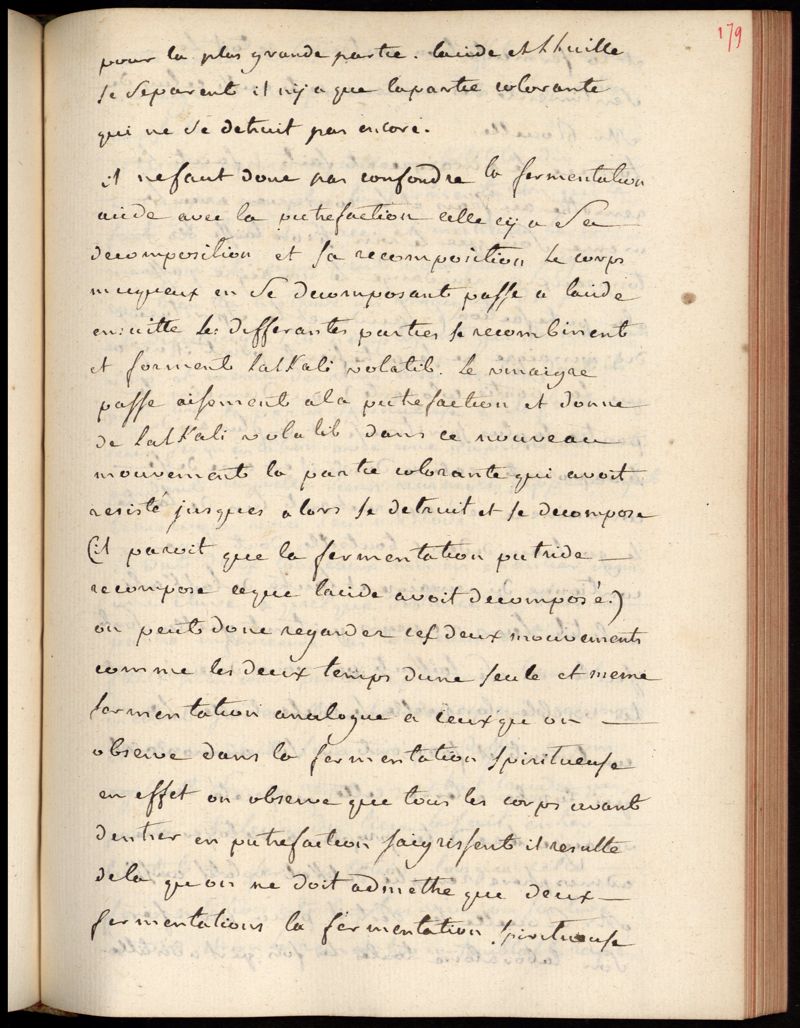 179
pour la plus grande partie. lacide et lhuille
se separent il nya que lapartie colorante
qui ne se detruit pas encore.
il nefaut donc pas confondre la fermentation
acide avec la putrefaction celle cy a sa
decomposition et sa recomposition le corps
muqueux en se decomposant passe a lacide
ensuitte les differantes parties se recombinent
et forment lalkali volatil. le vinaigre
passe aisement ala putrefaction et donne
de lalkali volatil dans ce nouveau
mouvement la partie colorante qui avoit
resisté jusques alors se detruit et se decompose
(il paroit que la fermentation putride —
recompose ceque lacide avoit decomposé.)
on peut donc regarder ces deux mouvements
comme les deux temps dune seule et meme
fermentation analogue a ceux qu on —
observe dans la fermentation spiritueuse
en effet on observe que tous les corps avant
dentrer en putrefaction saigrissent il resulte
dela qu on ne doit admettre que deux —
fermentations la fermentation spiritueuse